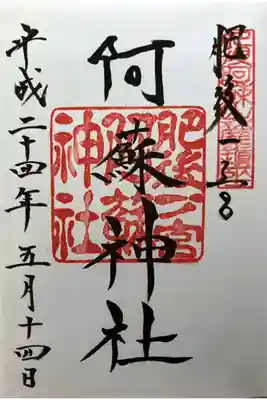 肥後一之宮
阿蘇神社
平成二十四年五月十四日
肥後一宮
阿蘇
神社